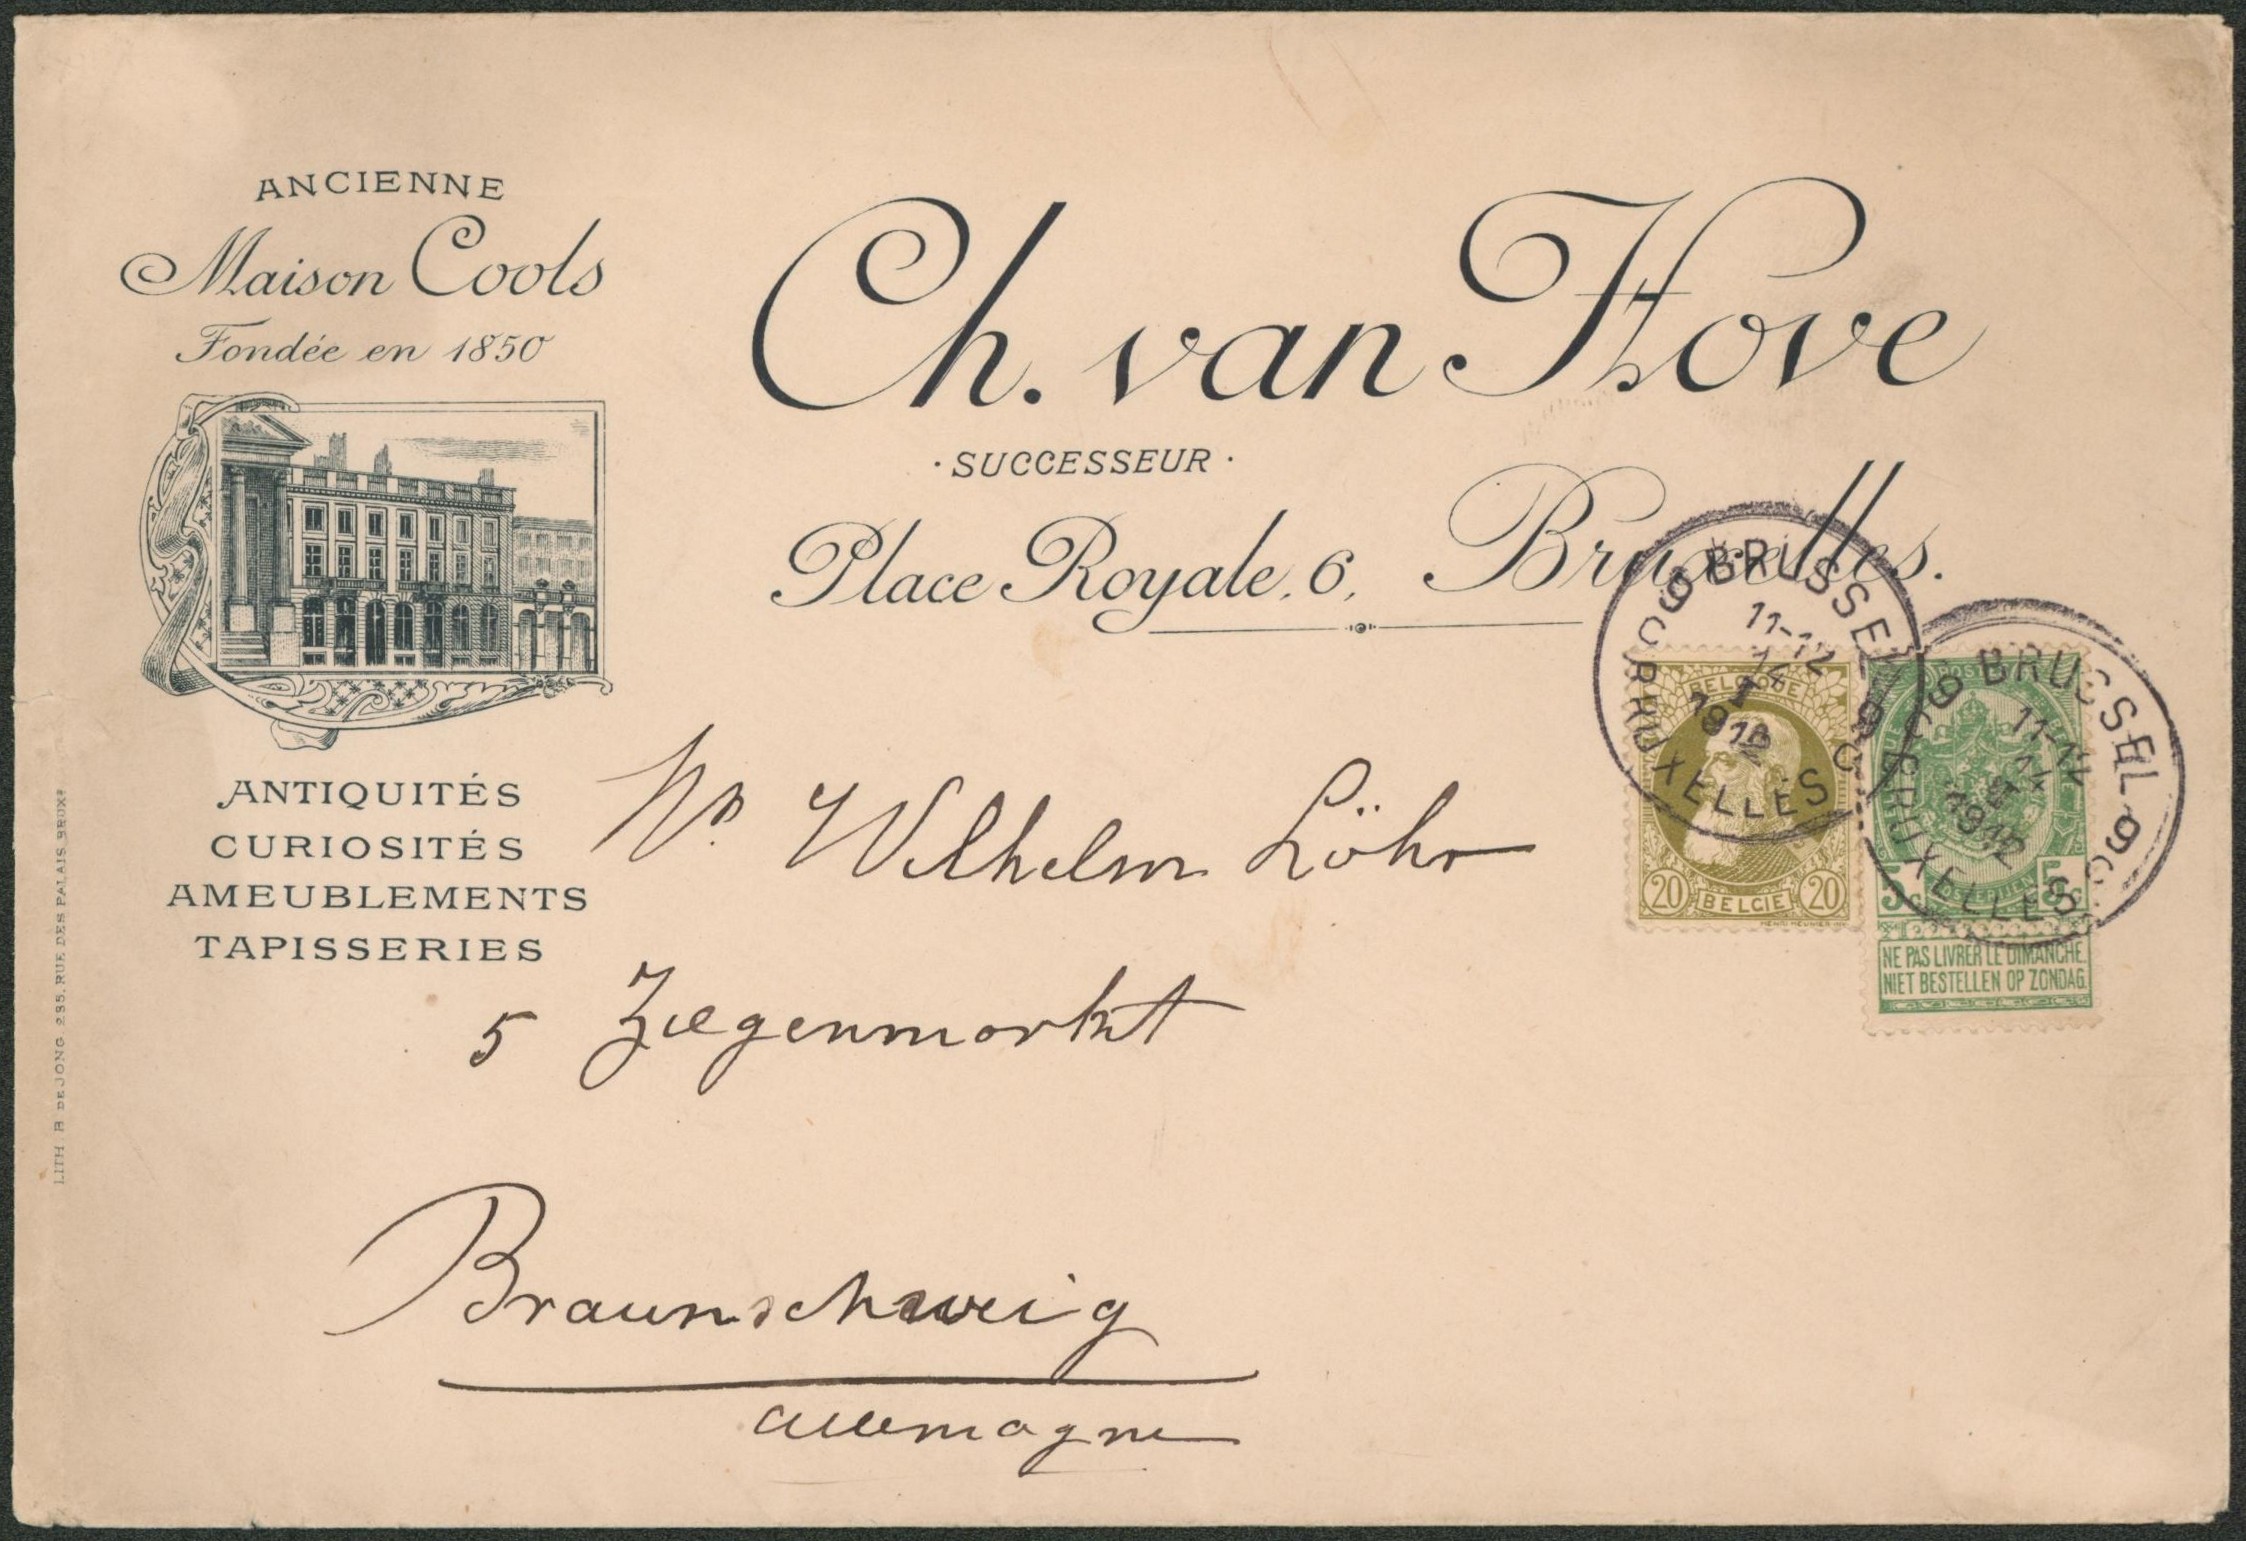 ANCIENNE
Maison Cools
Fondée en 1850
Ch. van Hove
· SUCCESSEUR ·
Place Royale, 6, Bruxelles.
ANTIQUITÉS
CURIOSITÉS
AMEUBLEMENTS
TAPISSERIES
LITH. B. DEJONG 285, RUE DES PALAIS BRUX?
Wilhelm Löhr
5 Ziegenmarkt
Braunschweig
Allemagne
9 BRUSSEL 9
11-12
14
I
1912
C BRUXELLES C
BELGIQUE
20 BELGIE 20
9 BRUSSEL 9
11-12
14
1912
C BRUXELLES C
5c 5c
NE PAS LIVRER LE DIMANCHE.
NIET BESTELLEN OP ZONDAG.